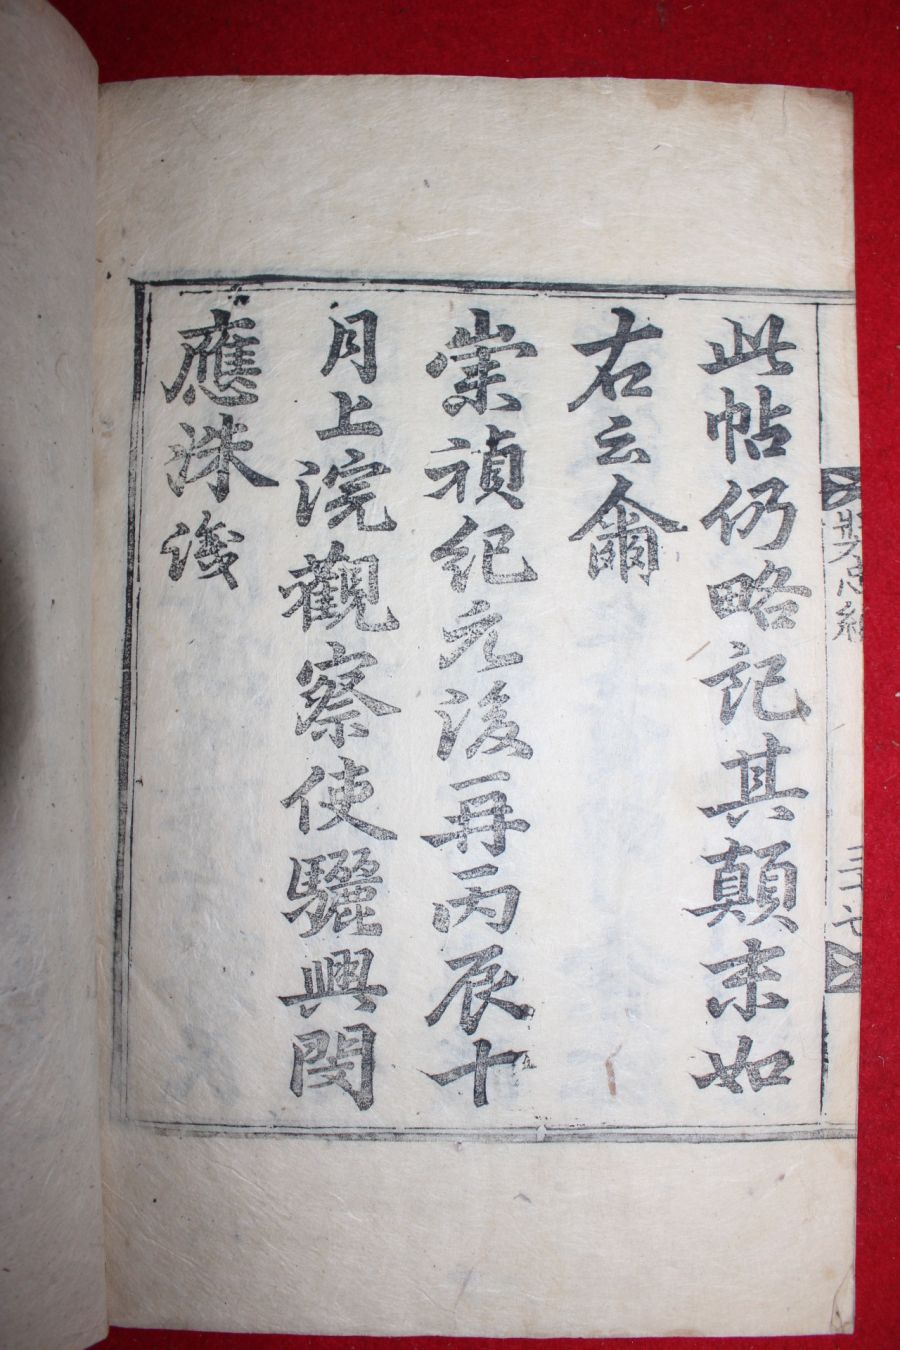 三十七
此帖仍略記其顛末如
右云爾
崇禎紀元後再丙辰十
月上浣觀察使驪興閔
應洙後